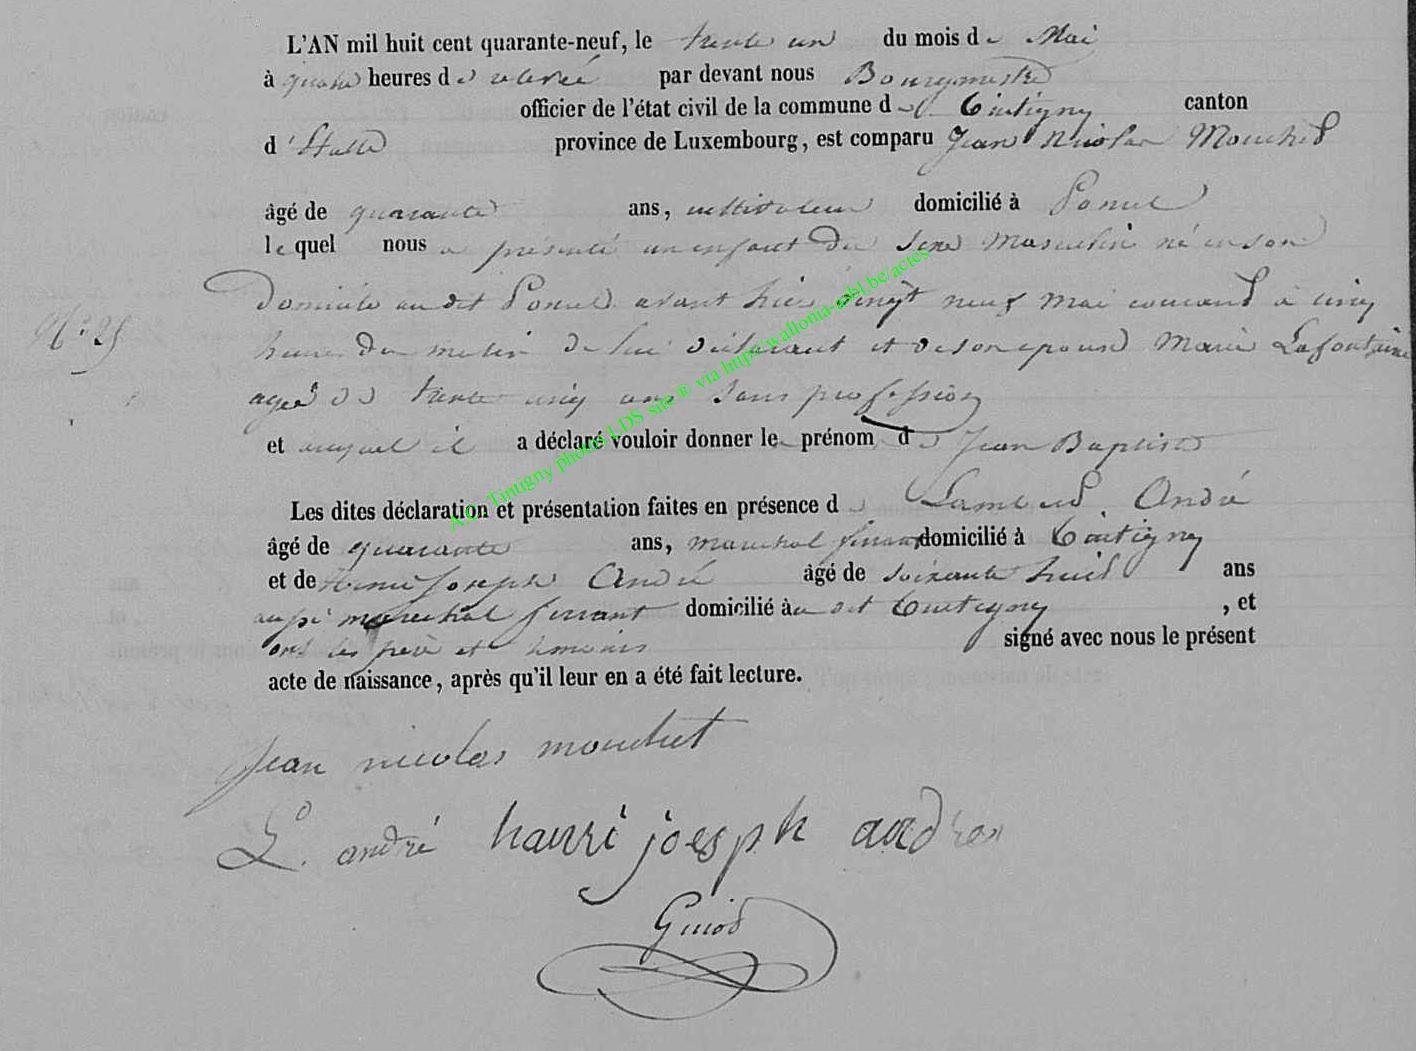 L'AN mil huit cent quarante-neuf, le trente un du mois de Mai
à quatre heures de relevée par devant nous Bourgmestre
officier de l'état civil de la commune de Tintigny canton
d'Etalle province de Luxembourg, est comparu Jean Nicolas Mouchet
âgé de quarante ans, instituteur domicilié à Poncel
lequel nous a présenté un enfant du sexe masculin né en son
domicile au dit Poncel avant hier vingt neuf mai courant à cinq
N° 25
heures du matin de lui déclarant et de son epouse Marie Lafontaine
agée de trente cinq ans sans profession
et auquel il a déclaré vouloir donner le prénom de Jean Baptiste
Les dites déclaration et présentation faites en présence de Lambert André
âgé de quarante ans, marechal ferrant domicilié à Tintigny
et de Henri Joseph André âgé de soixante huit ans
aussi marechal ferrant domicilié au dit Tintigny , et
ont les père et témoins signé avec nous le présent
acte de naissance, après qu'il leur en a été fait lecture.
A.C. Tintigny photos LDS site ® via http://wallonia-asbl.be/actes
Jean nicolas mouchet
L. andré hanri joesph andre